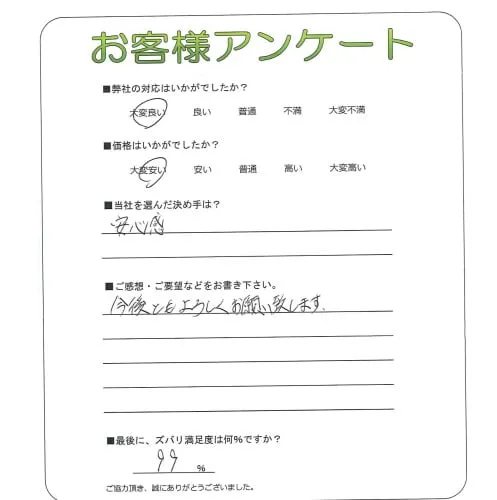 お客様アンケート
■弊社の対応はいかがでしたか？
大変良い 良い 普通 不満 大変不満
■価格はいかがでしたか？
大変安い 安い 普通 高い 大変高い
■当社を選んだ決め手は？
安心感
■ご感想・ご要望などをお書き下さい。
今後ともよろしくお願い致します。
■最後に、ズバリ満足度は何%ですか？
99 %
ご協力頂き、誠にありがとうございました。